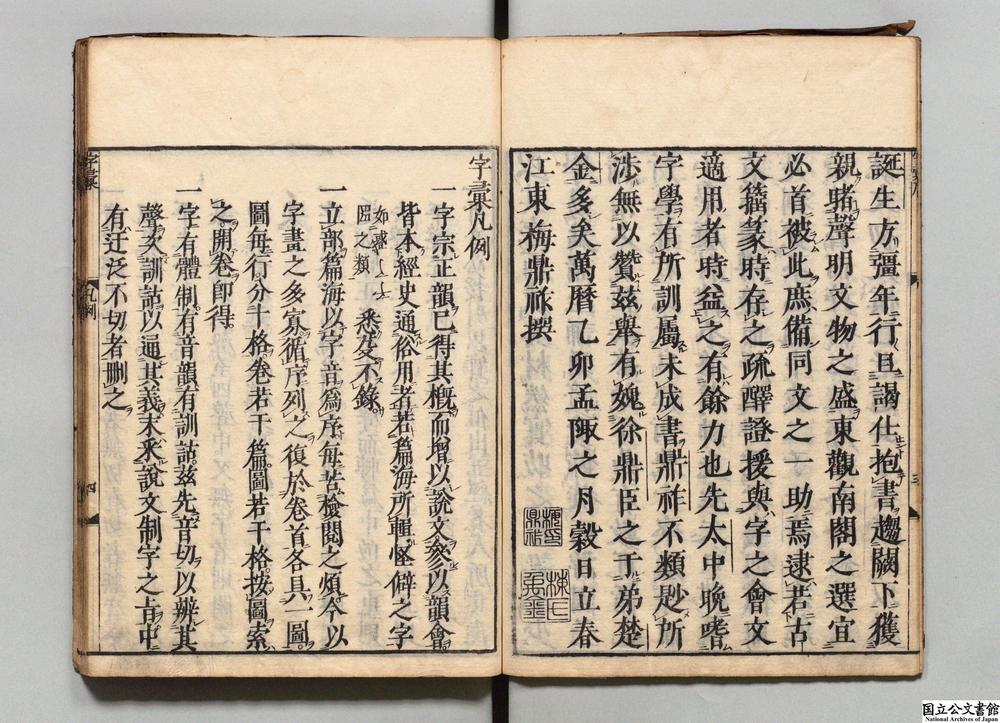 誕生方彊年行且謁仕抱書趨闕下獲
親睹聲明文物之盛東觀南閣之選宜
必首被此庶備同文之一助焉逮若古
文籀篆時存之疏釋證援與字之會文
適用者時益之有餘力也先太中晚嗜
字學有所訓屬未成書鼎祚不類尠所
涉無以贊茲舉有媿徐鼎臣之于弟楚
金多矣萬曆乙卯孟陬之月穀日立春
江東梅鼎祚撰
字彙凡例
一字宗正韻已得其概而增以說文參以韻會
皆本經史通俗用者若篇海所輯怪僻之字
悉芟不錄
一立部篇海以字音爲序每苦檢閱之煩今以
字畫之多寡循序列之復於卷首各具一圖
圖每行分十格卷若干篇圖若干格按圖索
之開卷卽得
一字有體制有音韻有訓詁茲先音切以辨其
聲次訓詁以通其義末采說文制字之旨中
有迂泛不切者刪之
字彙
凡例
四
国立公文書館
National Archives of Japan